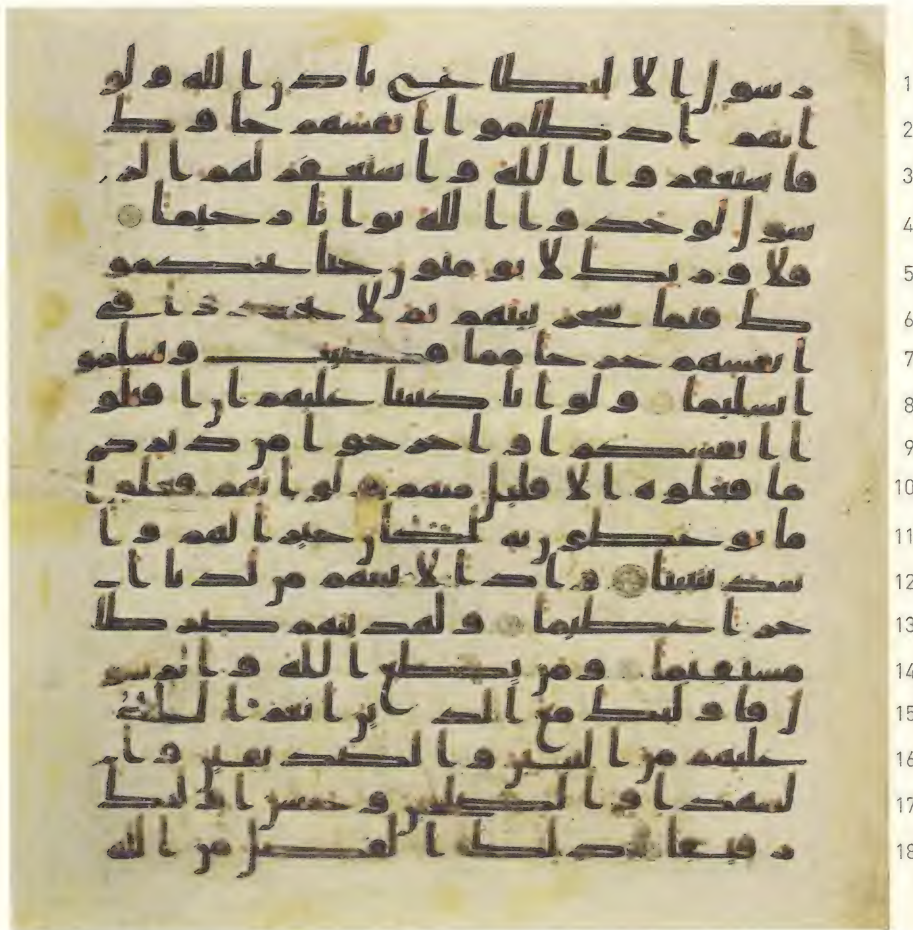 رسول الا ليطاع باذن الله ولو 1
انهم اذ ظلموا انفسهم جاوك 2
فاستغفروا الله واستغفر لهم الر 3
سول لوجدوا الله توابا رحيما 4
فلا وربك لا يومنون حتى يحكمو 5
ك فيما شجر بينهم ثم لا يجدوا في 6
انفسهم حرجا مما قضيت ويسلمو 7
ا تسليما ولو انا كتبنا عليهم ان اقتلو 8
ا انفسكم او اخرجوا من ديركم 9
ما فعلوه الا قليل منهم ولو انهم فعلوا 10
ما يوعظون به لكان خيرا لهم وا 11
شد تثبيتا واذا لاتينهم من لدنا ا 12
جرا عظيما ولهدينهم صرطا 13
مستقيما ومن يطع الله والرسو 14
ل فاوليك مع الذين انعم الله 15
عليهم من النبين والصديقين وا 16
لشهدا والصلحين وحسن اوليك 17
رفيقا ذلك الفضل من الله 18